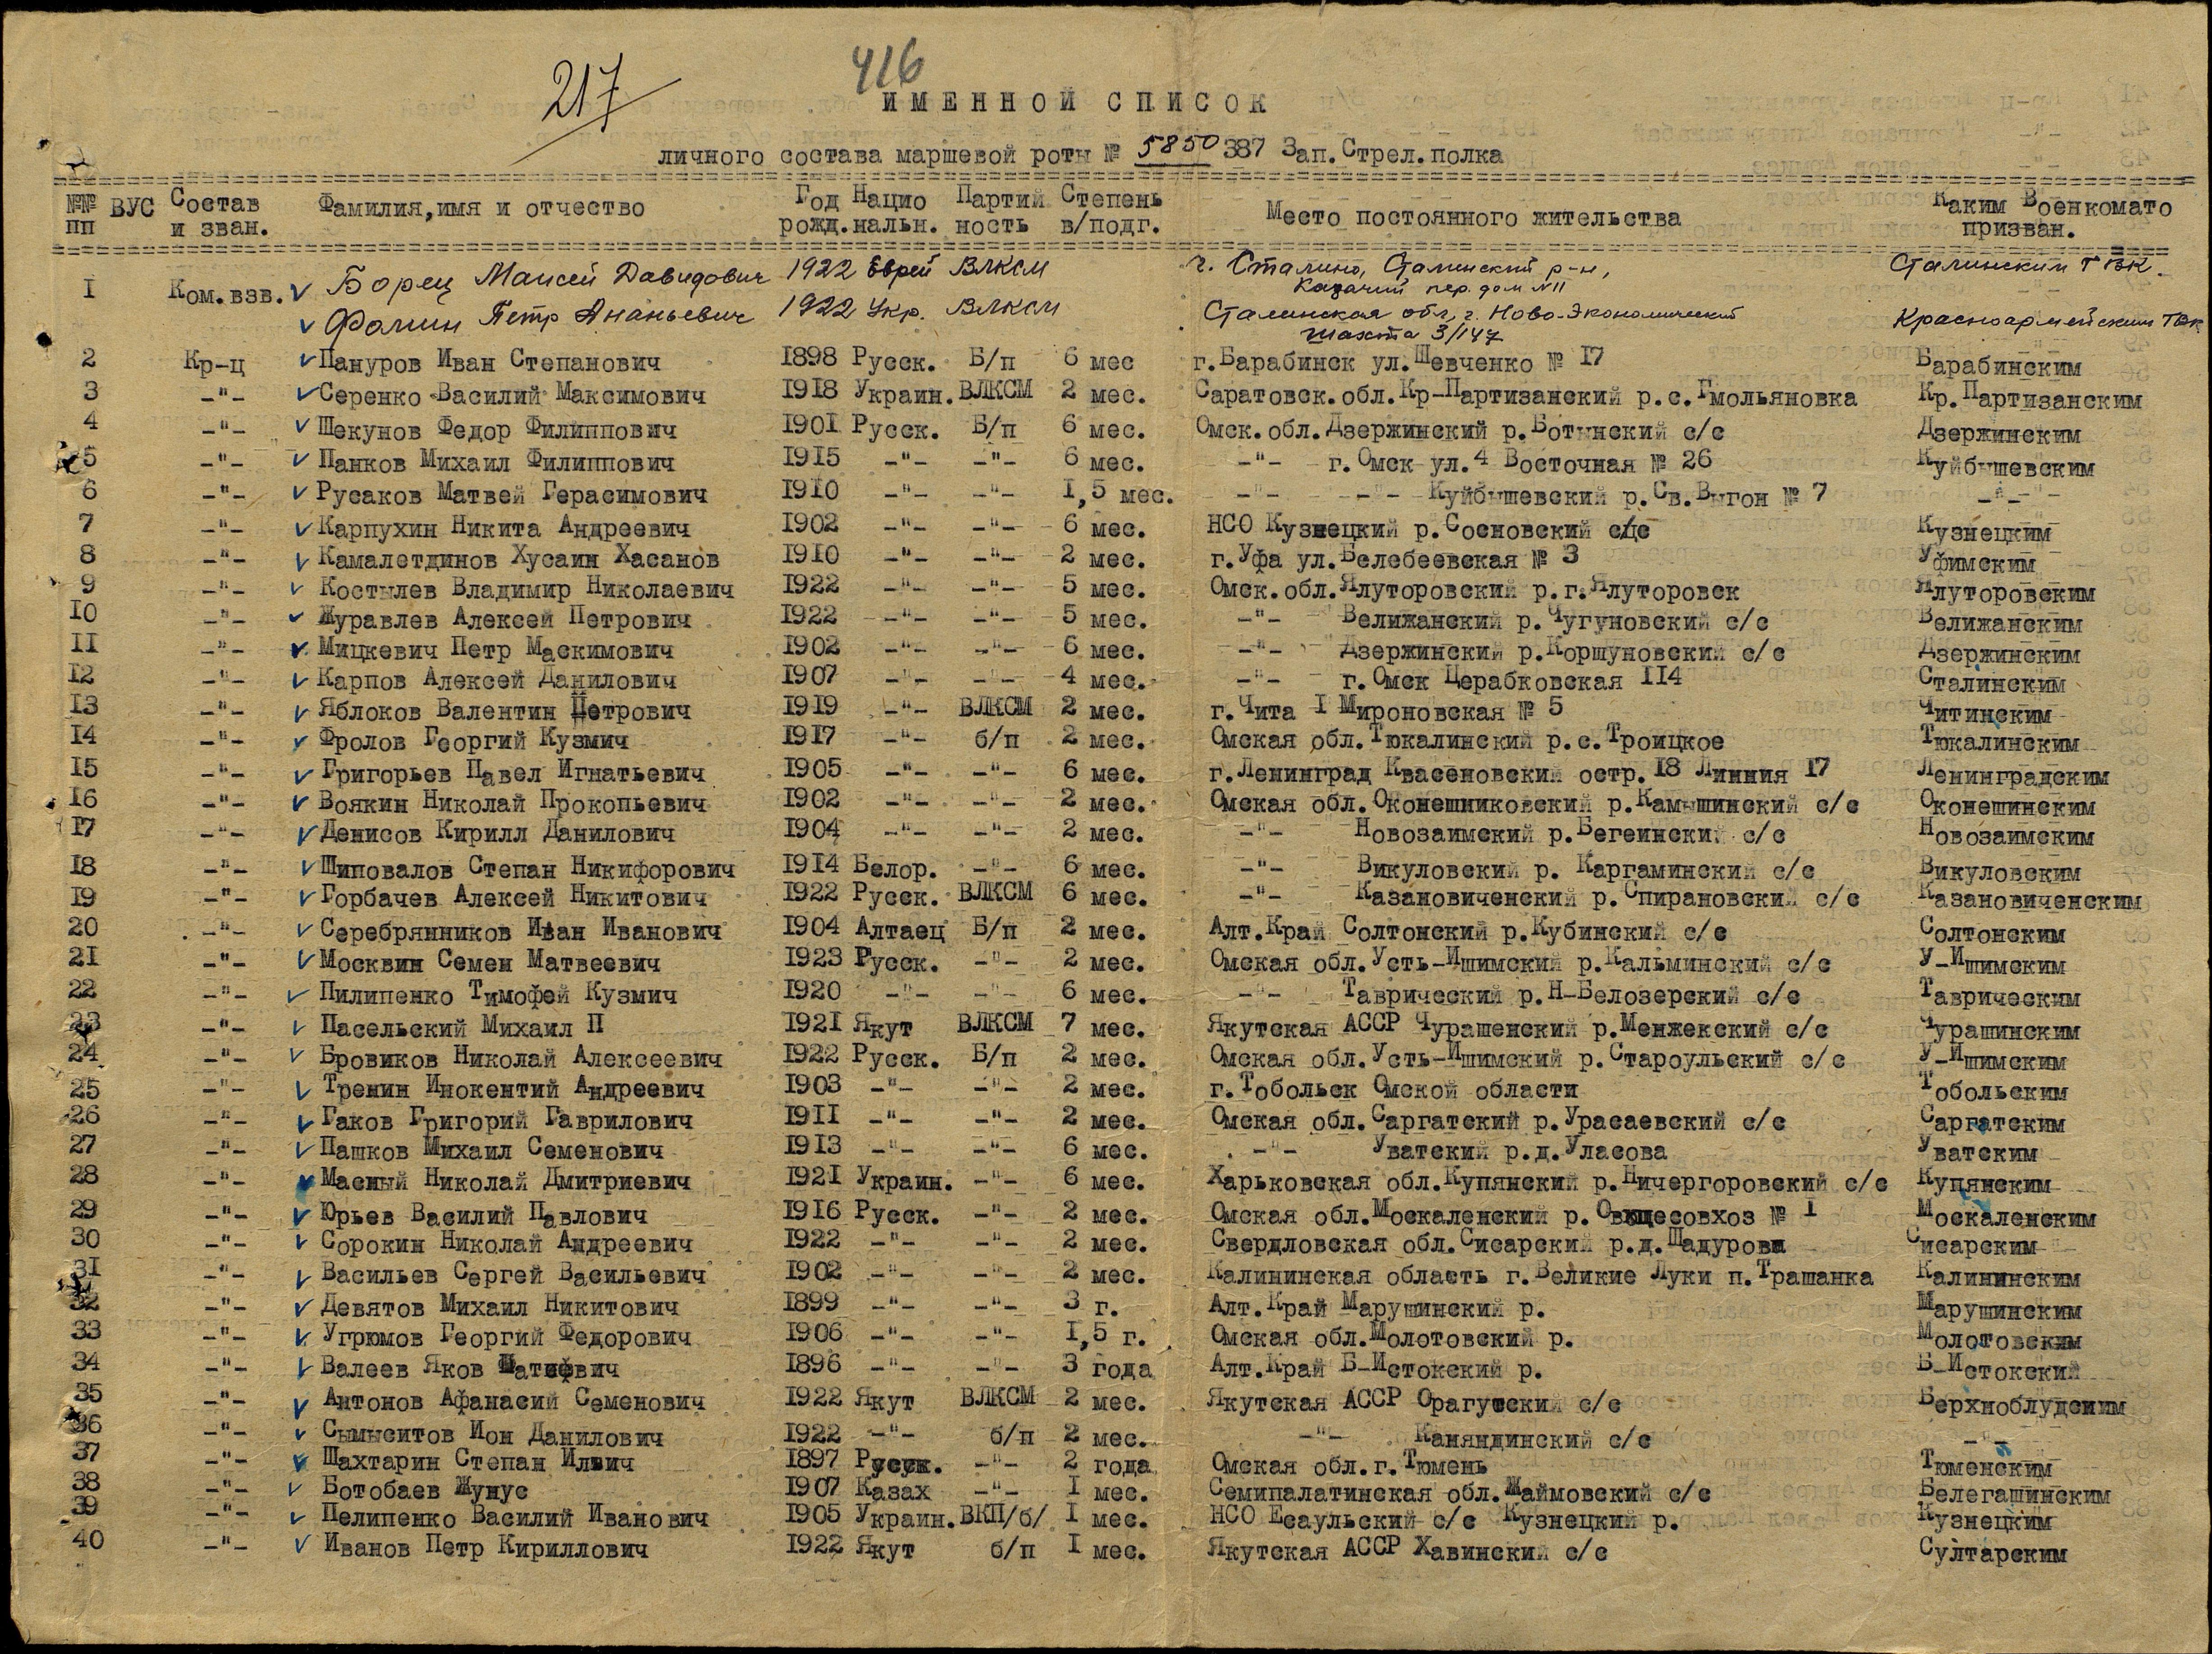 217
416
ИМЕННОЙ СПИСОК
личного состава маршевой роты № 5850 387 Зап.Стрел.полка
№№ пп ВУС Состав и зван. Фамилия,имя и отчество Год рожд. Нацио нальн. Партий ность Степень в/подг. Место постоянного жительства Каким Военкомато призван.
I Ком.взв. Борец Моисей Давидович 1922 Еврей ВЛКСМ г. Сталино, Сталинский р-н, Казачий пер. дом №11 Сталинским ГВК.
Фомин Петр Ананьевич 1922 Укр. ВЛКСМ Сталинская обл, г. Ново-Экономический шахта 3/147 Красноармейским ГВК
2 Кр-ц Пануров Иван Степанович I898 Русск. Б/п 6 мес г.Барабинск ул.Шевченко № I7 Барабинским
3 -"- Серенко Василий Максимович I9I8 Украин. ВЛКСМ 2 мес. Саратовск.обл.Кр-Партизанский р.с.Гмольяновка Кр.Партизанским
4 -"- Шекунов Федор Филиппович I90I Русск. Б/п 6 мес. Омск.обл.Дзержинский р.Ботынский с/с Дзержинским
5 -"- Панков Михаил Филиппович I9I5 -"- -"- 6 мес. -"- г.Омск ул.4 Восточная № 26 Куйбушевским
6 -"- Русаков Матвей Герасимович I9I0 -"- -"- I,5 мес. -"- -"- Куйбышевский р.Св.Выгон № 7 -"-
7 -"- Карпухин Никита Андреевич I902 -"- -"- 6 мес. НСО Кузнецкий р.Сосновский с/с Кузнецким
8 -"- Камалетдинов Хусаин Хасанов I9I0 -"- -"- 2 мес. г.Уфа ул.Белебеевская № 3 Уфимским
9 -"- Костылев Владимир Николаевич I922 -"- -"- 5 мес. Омск.обл.Ялуторовский р.г.Ялуторовск Ялуторовским
I0 -"- Журавлев Алексей Петрович I922 -"- -"- 5 мес. -"- Велижанский р.Чугуновский с/с Велижанским
II -"- Мицкевич Петр Маскимович I902 -"- -"- 6 мес. -"- Дзержинский р.Коршуновский с/с Дзержинским
I2 -"- Карпов Алексей Данилович I907 -"- -"- 4 мес. -"- г.Омск Церабковская II4 Сталинским
I3 -"- Яблоков Валентин Петрович I9I9 -"- ВЛКСМ 2 мес. г.Чита I Мироновская № 5 Читинским
I4 -"- Фролов Георгий Кузмич I9I7 -"- б/п 2 мес. Омская обл.Тюкалинский р.с.Троицкое Тюкалинским
I5 -"- Григорьев Павел Игнатьевич I905 -"- -"- 6 мес. г.Ленинград Квасеновский остр.I8 Линния I7 Ленинградским
I6 -"- Воякин Николай Прокопьевич I902 -"- -"- 2 мес. Омская обл.Оконешниковский р.Камышинский с/с Оконешинским
I7 -"- Денисов Кирилл Данилович I904 -"- -"- 2 мес. -"- Новозаимский р.Бегеинский с/с Новозаимским
I8 -"- Шиповалов Степан Никифорович I9I4 Белор. -"- 6 мес. -"- Викуловский р. Каргаминский с/с Викуловским
I9 -"- Горбачев Алексей Никитович I922 Русск. ВЛКСМ 6 мес. -"- Казановиченский р.Спирановский с/с Казановиченским
20 -"- Серебрянников Иван Иванович I904 Алтаец Б/п 2 мес. Алт.Край Солтонский р.Кубинский с/с Солтонским
2I -"- Москвин Семен Матвеевич I923 Русск. -"- 2 мес. Омская обл.Усть-Ишимский р.Кальминский с/с У-Ишимским
22 -"- Пилипенко Тимофей Кузмич I920 -"- -"- 6 мес. -"- Таврический р.Н-Белозерский с/с Таврическим
23 -"- Пасельский Михаил П I92I Якут ВЛКСМ 7 мес. Якутская АССР Чурашенский р.Менжекский с/с Чурашинским
24 -"- Бровиков Николай Алексеевич I922 Русск. Б/п 2 мес. Омская обл.Усть-Ишимский р.Староульский с/с У-Ишимским
25 -"- Тренин Инокентий Андреевич I903 -"- -"- 2 мес. г.Тобольск Омской области Тобольским
26 -"- Гаков Григорий Гаврилович I9II -"- -"- 2 мес. Омская обл.Саргатский р.Урасаевский с/с Саргатским
27 -"- Пашков Михаил Семенович I9I3 -"- -"- 6 мес. -"- Уватский р.д.Уласова Уватским
28 -"- Масный Николай Дмитриевич I92I Украин. -"- 6 мес. Харьковская обл.Купянский р.Ничергоровский с/с Купянским
29 -"- Юрьев Василий Павлович I9I6 Русск. -"- 2 мес. Омская обл.Москаленский р. Овцесовхоз № I Москаленским
30 -"- Сорокин Николай Андреевич I922 -"- -"- 2 мес. Свердловская обл.Сисарский р.д.Шадурова Сисарским
3I -"- Васильев Сергей Васильевич I902 -"- -"- 2 мес. Калининская область г.Великие Луки п.Трашанка Калининским
32 -"- Девятов Михаил Никитович I899 -"- -"- 3 г. Алт.Край Марушинский р. Марушинским
33 -"- Угрюмов Георгий Федорович I906 -"- -"- I,5 г. Омская обл.Молотовский р. Молотовским
34 -"- Валеев Яков I896 -"- -"- 3 года Алт.Край Б-Истокский р. Б-Истокский
35 -"- Антонов Афанасий Семенович I922 Якут ВЛКСМ 2 мес. Якутская АССР Орагутский с/с Верхноблудсиим
36 -"- Сымыситов Ион Данилович I922 -"- б/п 2 мес. -"- Каняндинский с/с -"-
37 -"- Шахтарин Степан Ильич I897 Русск. -"- 2 года Омская обл.г.Тюмень Тюменским
38 -"- Ботобаев Жунус I907 Казах -"- I мес. Семипалатинская обл.Жаймовский с/с Белегашинским
39 -"- Пелипенко Василий Иванович I905 Украин. ВКП/б/ I мес. НСО Есаульский с/с Кузнецкий р. Кузнецким
40 -"- Иванов Петр Кириллович I922 Якут б/п I мес. Якутская АССР Хавинский с/с Султарским